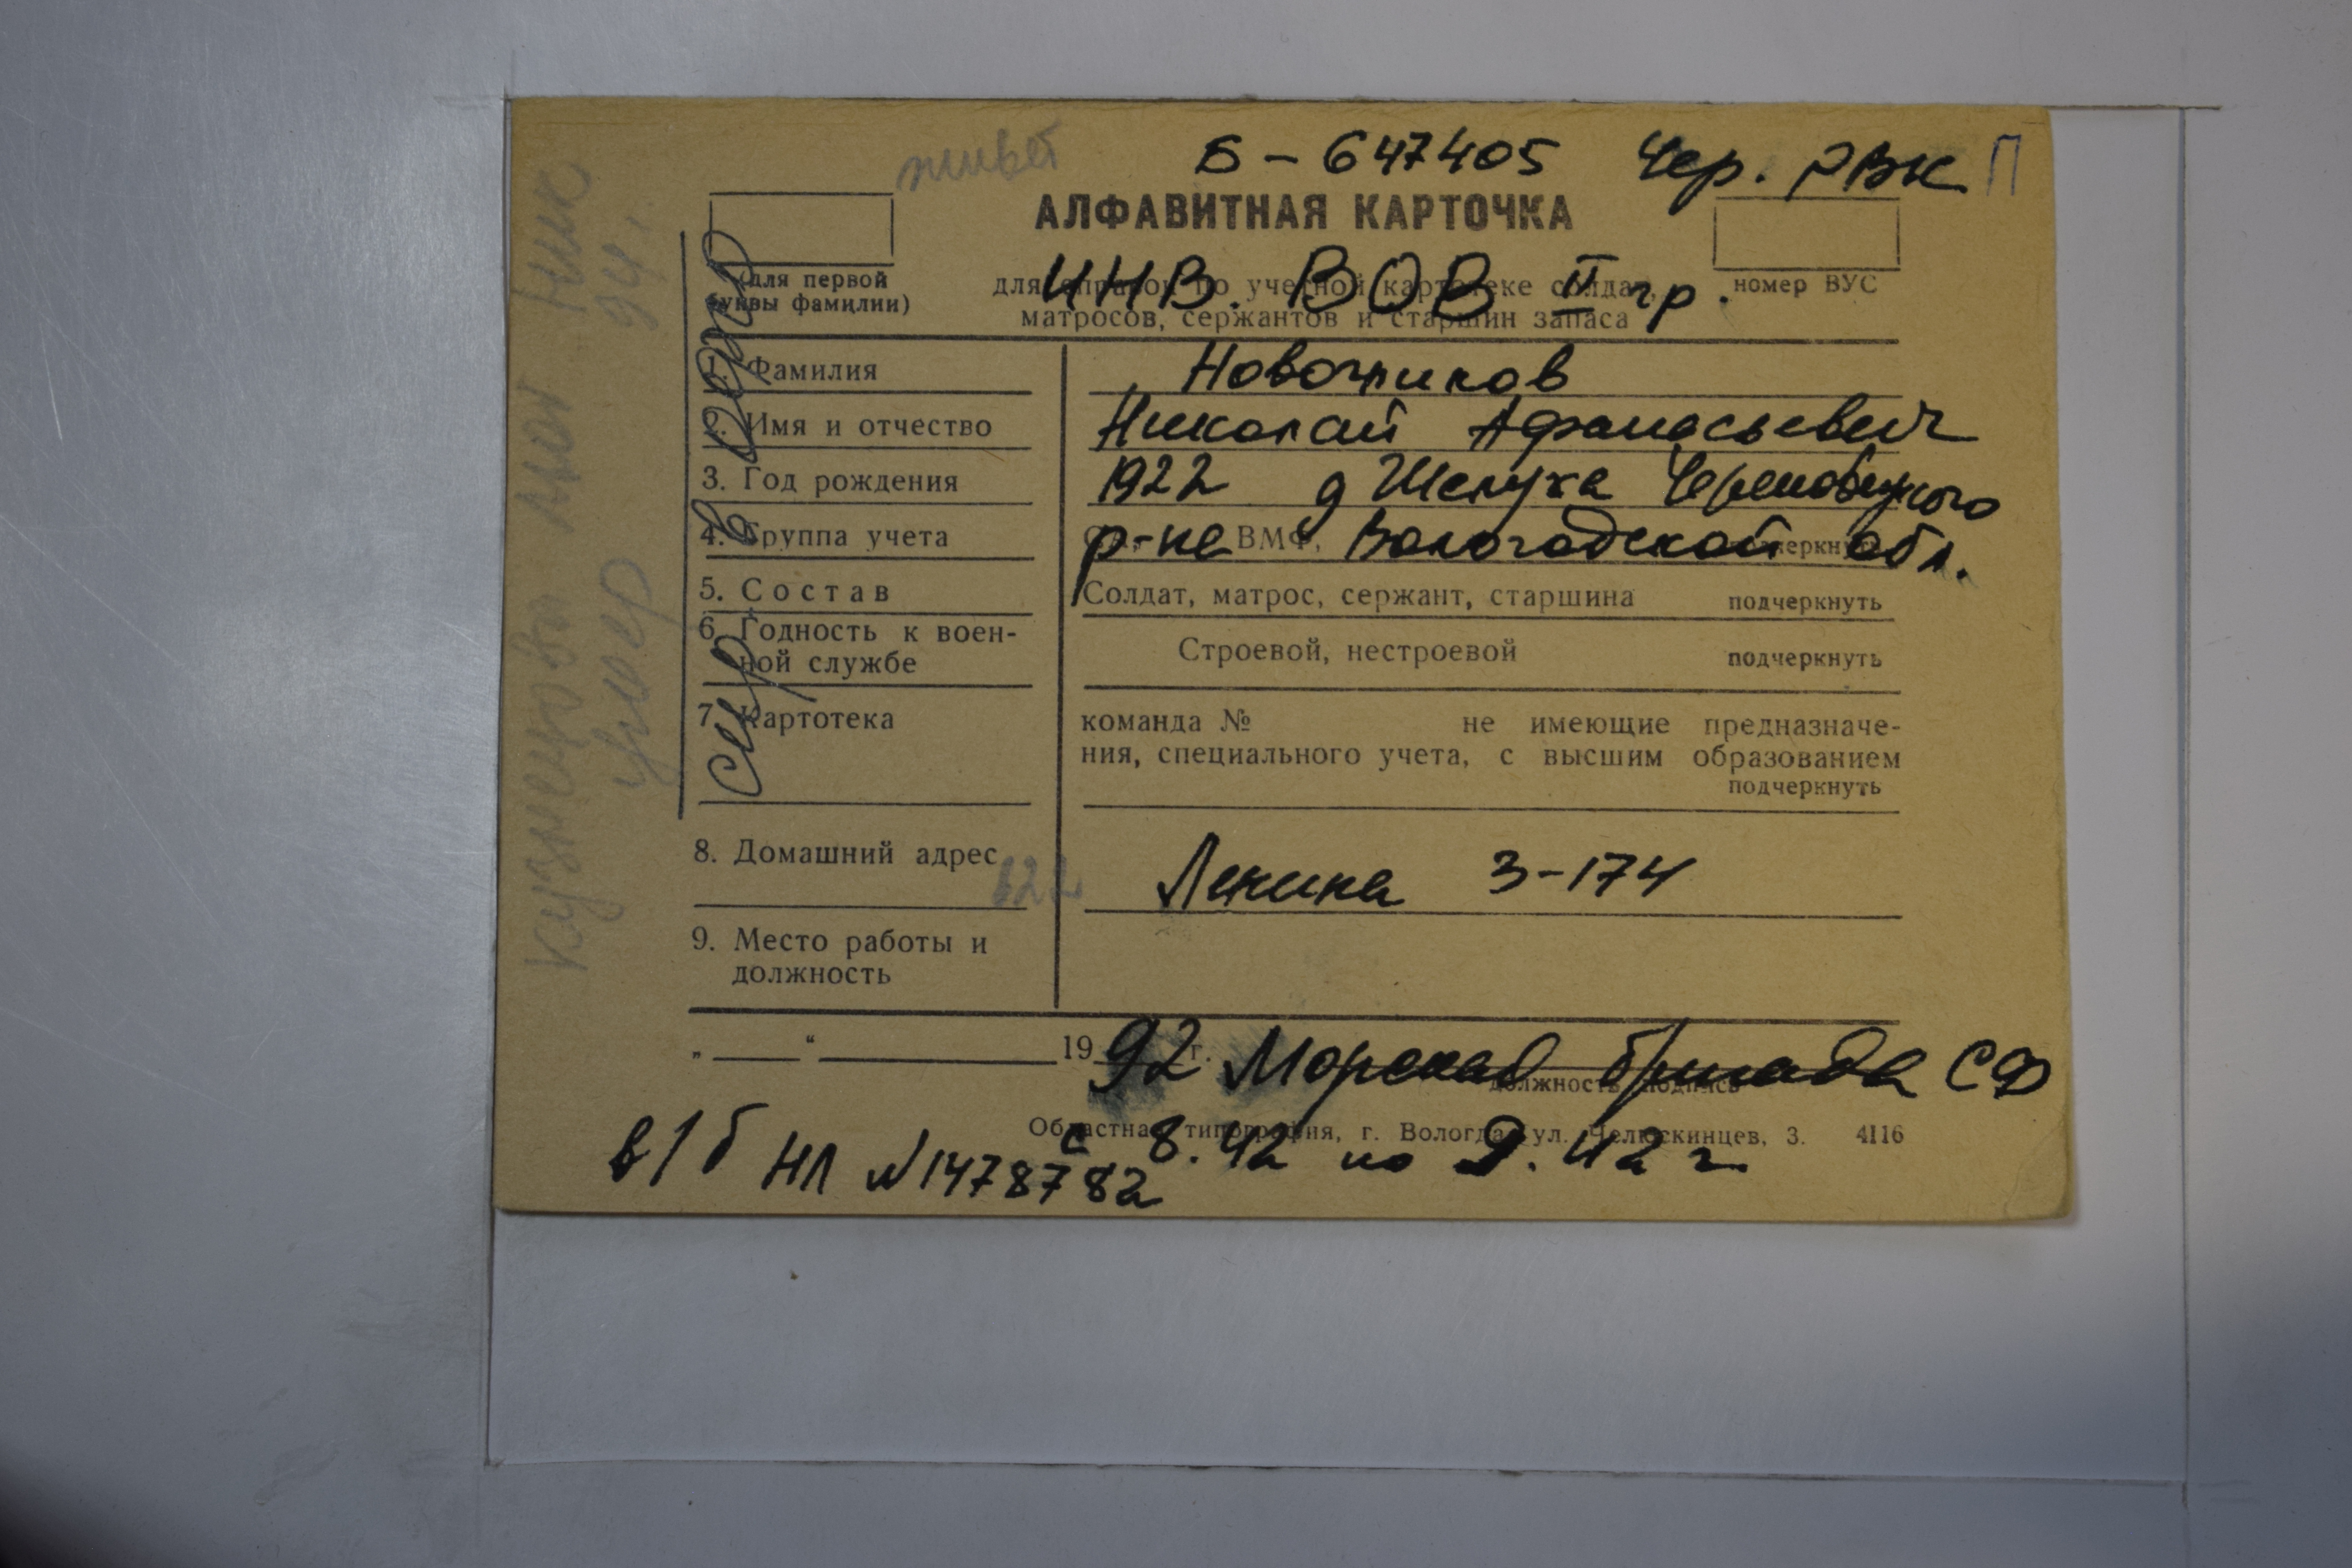 живет
Б - 647405 Чер. РВК П
АЛФАВИТНАЯ КАРТОЧКА
(для первой буквы фамилии)
для справок по учетной картотеке солдат,
ИНВ. ВОВ II гр.
матросов, сержантов и старшин запаса
номер ВУС
1. Фамилия Новожилов
2. Имя и отчество Николай Афанасьевич
3. Год рождения 1922 д Шелуха Череповецкого
4. Группа учета ВМФ, подчеркнуть
р-на Вологодской обл.
5. Состав Солдат, матрос, сержант, старшина подчеркнуть
6. Годность к воен-
ной службе Строевой, нестроевой подчеркнуть
7. Картотека команда № не имеющие предназначе-
ния, специального учета, с высшим образованием
подчеркнуть
8. Домашний адрес Ленина 3-174
9. Место работы и
должность
„ “ 19 г.
92 Морская бригада СФ
должность подпись
Областная типография, г. Вологда, ул. Челюскинцев, 3. 4116
с 8.42 по 9.42 г.
в/б НЛ №1478782
умер
94 г.